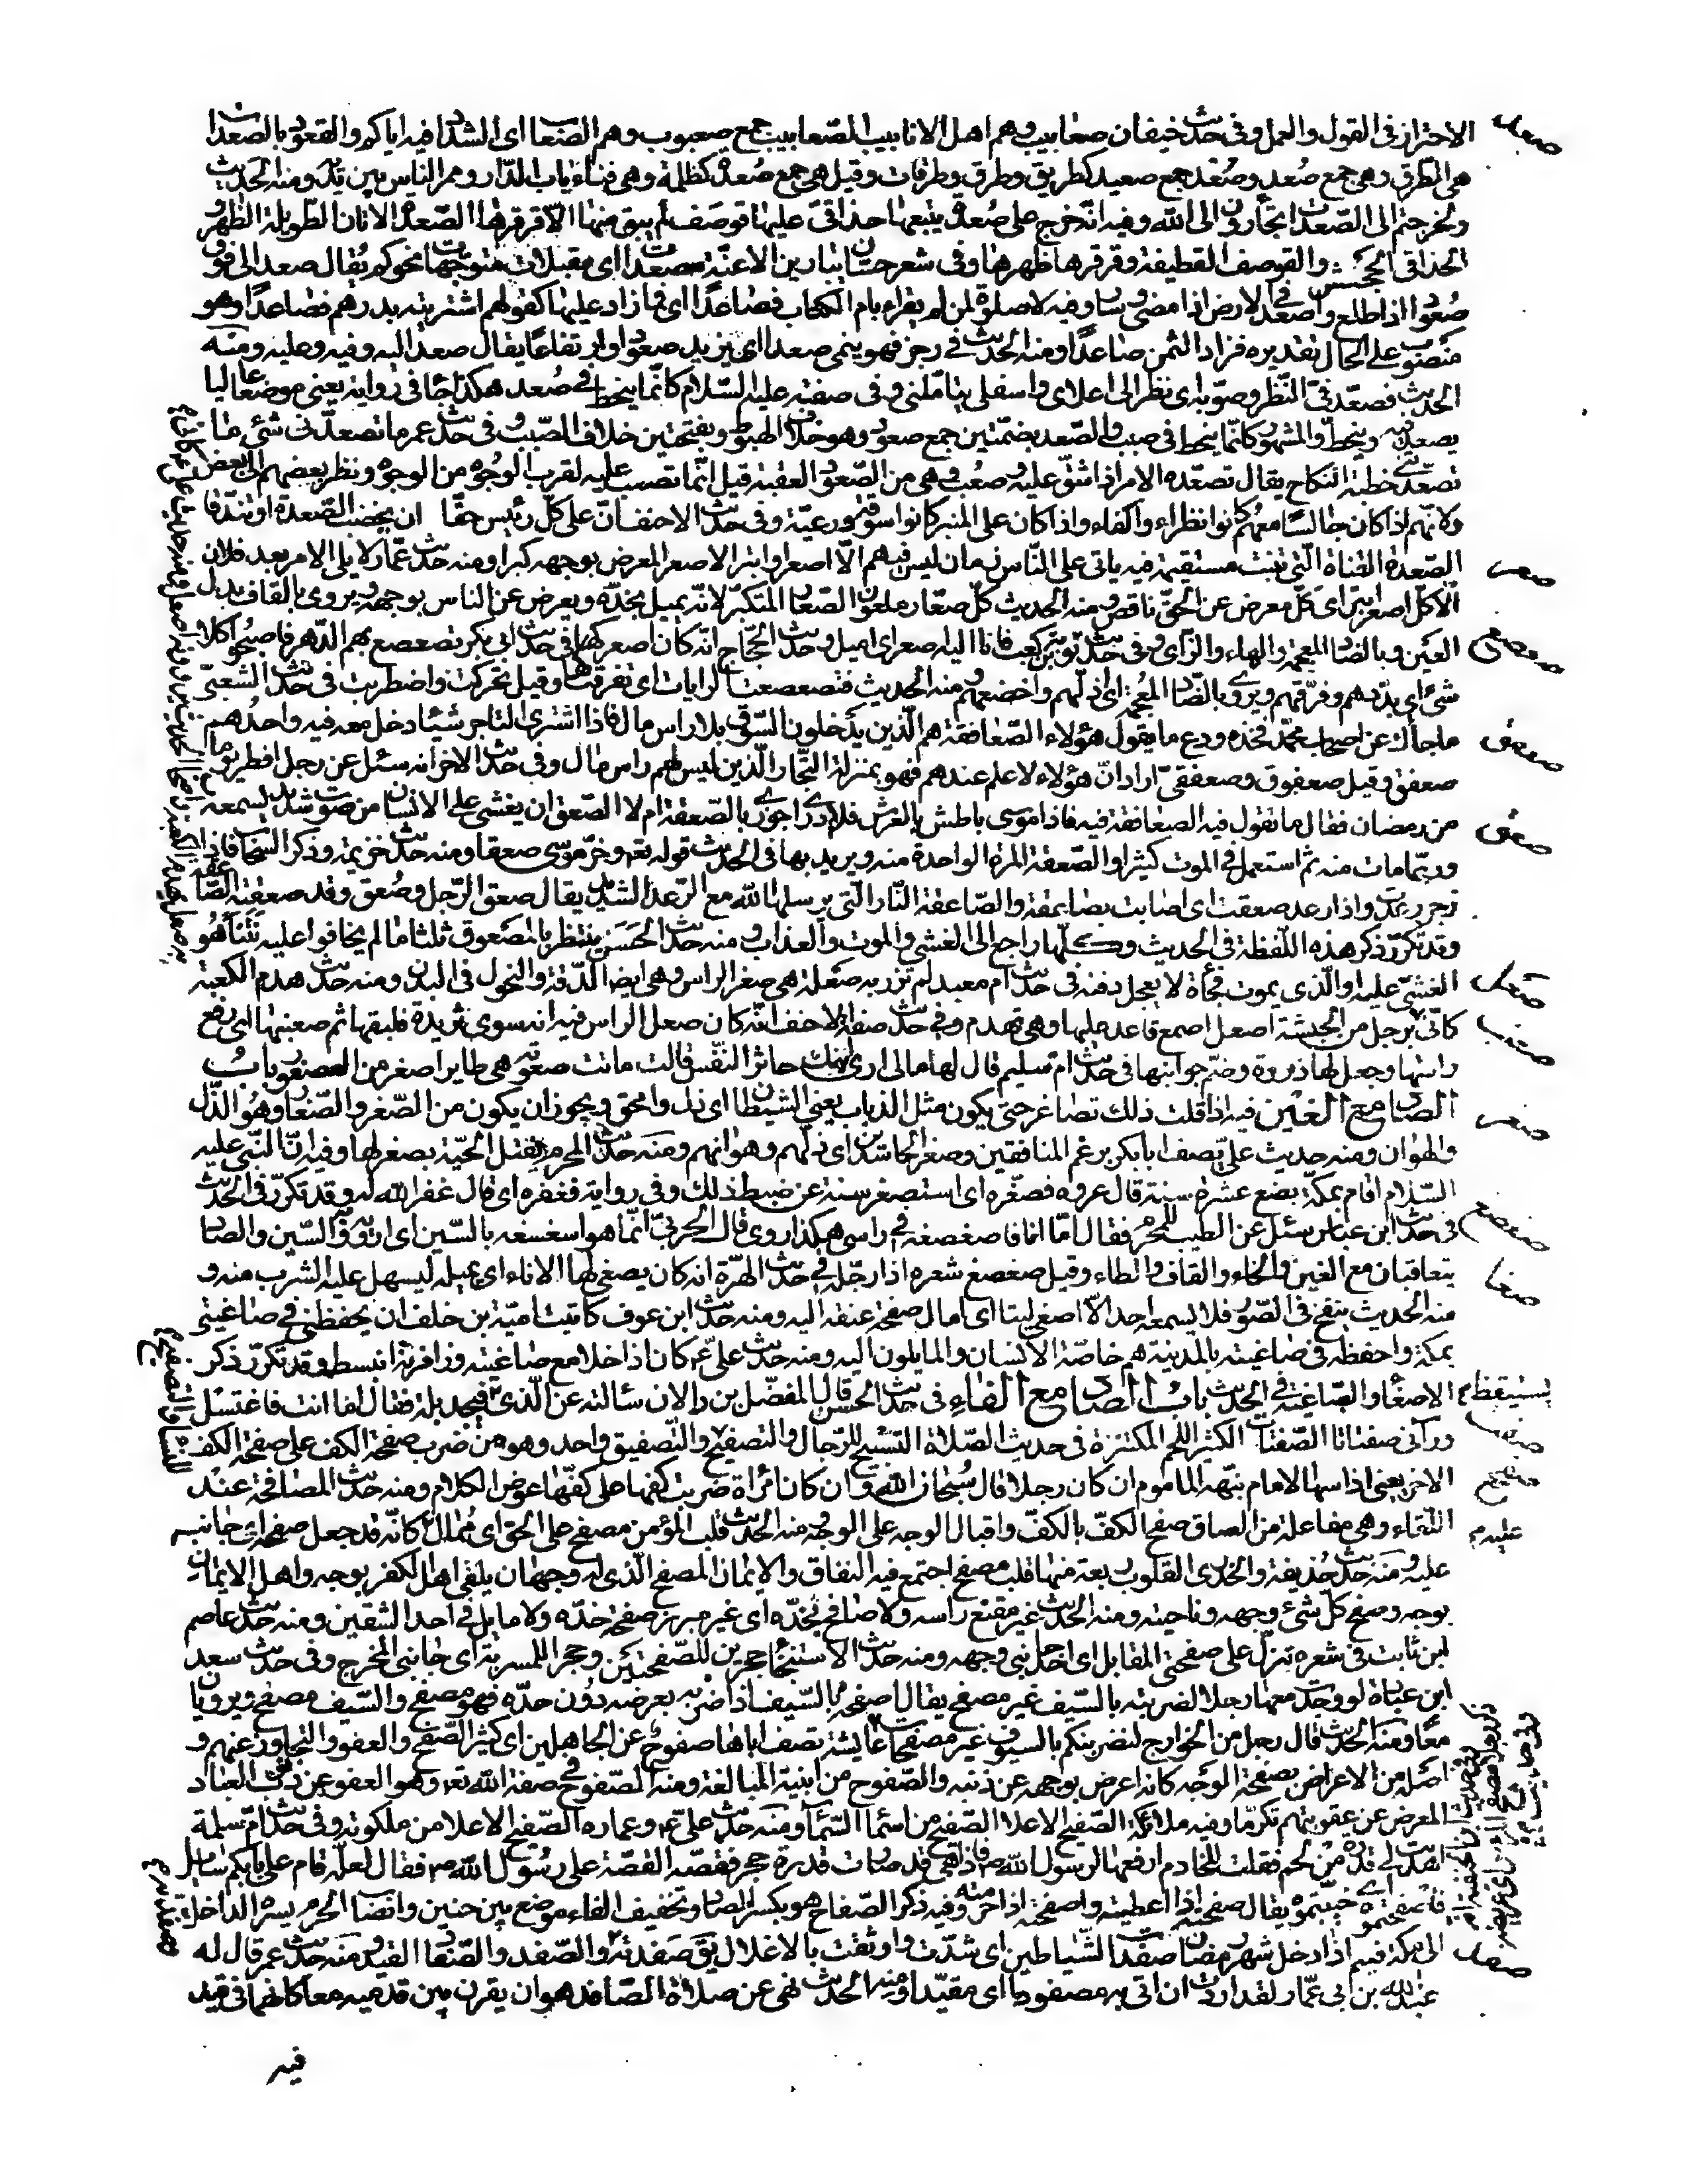 الاحتراز فى القول والعمل وفى حديث خيفان صعابيب وهم اهل الانابيب الصعابيب جمع صعبوب وهم الصعاب اى الشداد فيه اياكم والقعود بالصعدات
هى الطرق وهى جمع صُعد وصُعُد جمع صعيد كطريق وطرق وطرقات وقيل هى جمع صُعدة كظلمة وهى فناء باب الدار وممر الناس بين يديه ومنه الحديث
ولخرجتم الى الصعدات تجأرون الى الله وفيه انه خرج على صُعدة يتبعها حذاقى عليها قوصف لم يبق منها الا قرقرها الصعدة الاتان الطويلة الظهر و
الحذاقى الجحش والقوصف القطيفة وقرقرها ظهرها وفى شعر حسان يبارين الاعنة مصعدات اى مقبلات متوجهات نحوكم يقال صعد الى فوق
صُعودا اذا طلع واصعد فى الارض اذا مضى وسار وفيه لا صلوة لمن لم يقراء بام الكتاب فصاعدًا اى فما زاد عليها كقولهم اشتريته بدرهم فصاعدًا وهو
منصوب على الحال تقديره فزاد الثمن صاعدًا ومنه الحديث فى رجز فهو ينمى صعدا اى يزيد صعودا وارتفاعًا يقال صعد اليه وفيه وعليه ومنه
الحديث فصعّد فىّ النظر وصوّبه اى نظر الى اعلاى واسفلى يتأملنى وفى صفته عليه السلام كانما ينحط فى صُعد هكذا جاء فى رواية يعنى موضعا عاليا
يصعد فيه وينحط والمشهور كانما ينحط فى صبب والصعد بضمتين جمع صعود وهو خلاف الهبوط وبفتحتين خلاف الصبب وفى حديث عمر ما تصعدنى شئ ما
تصعدتنى خطبة النكاح يقال تصعّده الامر اذا شق عليه وصعب وهى من الصعود العقبة قيل انما تصعب عليه لقرب الوجوه من الوجوه ونظر بعضهم الى بعض
ولانهم اذا كان جالسًا معهم كانوا نظراء واكفاء واذا كان على المنبر كانوا سوقة ورعية وفى حديث الاحنف ان على كل رئيس حقا ان يخضب الصعدة او تندقا
الصعدة القناة التى تنبت مستقيمة فيه ياتى على الناس زمان ليس فيهم الا اصعر او ابتر الاصعر المعرض بوجهه كبرا ومنه حديث عمار لا يلى الامر بعد فلان
الا كل اصعر ابتر اى كل معرض عن الحق ناقص ومنه الحديث كل صعّار ملعون الصعار المتكبر لانه يميل بخده ويعرض عن الناس بوجهه ويروى بالقاف بدل
العين وبالضاد المعجمة والفاء والزاى وفى حديث توبة كعب فانا اليه اصعر اى اميل وحديث الحجاج انه كان اصعر كهاكها فى حديث ابى بكر تصعصع بهم الدهر فاصبحوا كلا
شئ اى بدّدهم وفرقهم ويروى بالضاد المعجمة اى اذلهم واخضعهم ومنه الحديث فتصعصعت الرايات اى تفرقت وقيل تحركت واضطربت فى حديث الشعبى
ما جاءك عن اصحاب محمد فخذه ودع ما يقول هؤلاء الصعافقة هم الذين يدخلون السوق بلا راس مال فاذا اشترى التاجر شيئا دخل معه فيه واحدهم
صعفق وقيل صعفوق وصعفقى اراد ان هؤلاء لا علم عندهم فهو بمنزلة التجار الذين ليس لهم راس مال وفى حديثه الاخر انه سئل عن رجل افطر يوما
من رمضان فقال ما تقول فيه الصعافقة فيه فاذا موسى باطش بالعرش فلا ادرى اجوزى بالصعقة ام لا الصعق ان يغشى على الانسان من صوت شديد يسمعه
وربما مات منه ثم استعمل فى الموت كثيرا والصعقة المرة الواحدة منه ويريد بها فى الحديث قوله تعالى وخرّ موسى صعقا ومنه حديث خزيمة وذكر السحاب فاذا
زجر رعد واذا رعد صعقت اى اصابت بصاعقة والصاعقة النار التى يرسلها الله مع الرعد الشديد يقال صعق الرجل وصُعق وقد صعقته الصاعقة
وقد تكرر ذكر هذه اللفظة فى الحديث وكلها راجع الى الغشى والموت والعذاب ومنه حديث الحسن ينتظر بالمصعوق ثلثا ما لم يخافوا عليه نتنا هو
المغشى عليه او الذى يموت فجأة لا يعجل دفنه فى حديث ام معبد لم تزر به صعلة هى صغر الراس وهى ايضا الدقة والنحول فى البدن ومنه حديث هدم الكعبة
كانى برجل من الحبشة اصعل اصمع قاعد عليها وهى تهدم وفى حديث صفة الاحنف انه كان صعل الراس فيه انه سوى ثريدة فلبقها ثم صعنبها اى رفع
راسها وجعل لها ذروة وضم جوانبها فى حديث ام سليم قال لها مالى ارى ابنك خاثر النفس قالت ماتت صعوته هى طاير اصغر من العصفور باب
الصاد مع الغين فيه اذا قلت ذلك تصاغر حتى يكون مثل الذباب يعنى الشيطان اى ذل وامحق ويجوز ان يكون من الصغر والصغار وهو الذل
والهوان ومنه حديث على يصف ابا بكر برغم المنافقين وصغر الحاسدين اى ذلهم وهوانهم ومنه حديث المحرم يقتل الحية بصغر لها وفيه ان النبى عليه
السلام اقام بمكة بضع عشرة سنة قال عروة فصغّره اى استصغر سنه عن ضبط ذلك وفى رواية فغفره اى قال غفر الله له وقد تكرر فى الحديث
فى حديث ابن عباس سئل عن الطيب للمحرم فقال اما انا فاصغصغه فى راسى هكذا روى قال الحربى انما هو اسغسغه بالسين اى ارويه به والسين والصاد
يتعاقبان مع الغين والخاء والقاف والطاء وقيل صغصغ شعره اذا رجّله فى حديث الهرة انه كان يصغى لها الاناء اى يميله ليسهل عليها الشرب منه و
منه الحديث ينفخ فى الصور فلا يسمعه احد الا اصغى ليتا اى امال صفحة عنقه اليه ومنه حديث ابن عوف كاتبت امية بن خلف ان يحفظنى فى صاغيتى
بمكة واحفظه فى صاغيته بالمدينة هم خاصة الانسان والمايلون اليه ومنه حديث على ع م كان اذا خلا مع صاغيته وزافرته انبسط وقد تكرر ذكر
الاصغاء والصاغية فى الحديث باب الصاد مع الفاء فى حديث الحسن قال المفضل بن رالان سالته عن الذى فيجد بلة فقال اما انت فاغتسل
ورآنى صفتاتا الصفتات الكثير اللحم المكتنزه فى حديث الصلاة التسبيح للرجال والتصفيح والتصفيق واحد وهو من ضرب صفحة الكف على صفحة الكف
الاخر يعنى اذا سها الامام نبهه الماموم ان كان رجلا قال سبحان الله وان كان امرأة ضربت كفها على كفها عوض الكلام ومنه حديث المصافحة عند
اللقاء وهى مفاعلة من الصاق صفح الكف بالكف واقبال الوجه على الوجه ومنه الحديث قلب المؤمن مصفح على الحق اى ممال كانه قد جعل صفحه اى جانبه
عليه ومنه حديث حذيفة والخدرى القلوب اربعة منها قلب مصفح اجتمع فيه النفاق والايمان المصفح الذى له وجهان يلقى اهل الكفر بوجه واهل الايمان
بوجه وصفح كل شئ وجهه وناحيته ومنه الحديث غير مقنع راسه ولا صافح بخده اى غير مبرز صفحة خده ولا مايل فى احد الشقين ومنه حديث عاصم
ابن ثابت فى شعره تزل على صفحتى المقابل اى احد جانبى وجهه ومنه حديث الاستنجاء حجرين للصفحتين وحجرا للمسربة اى جانبى المخرج وفى حديث سعد
ابن عبادة لو وجدت معها رجلا لضربته بالسيف غير مصفح يقال اصفحه بالسيف اذا ضربه بعرضه دون حده فهو مصفح والسيف مصفح ويرويان
معًا ومنه الحديث قال رجل من الخوارج لنضربنكم بالسيوف غير مصفحات عايشة تصف اباها صفوح عن الجاهلين اى كثير الصفح والعفو والتجاوز عنهم و
اصله من الاعراض بصفحة الوجه كانه اعرض بوجهه عن ذنبه والصفوح من ابنية المبالغة ومنه الصفوح فى صفة الله تعالى وهو العفو عن ذنوب العباد
المعرض عن عقوبتهم تكرما وفيه ملائكة الصفيح الاعلا الصفيح من اسماء السماء ومنه حديث على ع م وعمارة الصفيح الاعلا من ملكوته وفى حديث ام سلمة
اهديت لى فدرة من لحم فقلت للخادم ارفعها لرسول الله ص م فاذا هى قد صارت فدرة حجر فقصّت القصة على رسول الله ص م فقال لعله قام على بابكم سايل
فاصفحتموه اى خيبتموه يقال صفحته اذا اعطيته واصفحته اذا حرمته وفيه ذكر الصفاح هو بكسر الصاد وتخفيف الفاء موضع بين حنين وانصاب الحرم يسرة الداخل
الى مكة فيه اذا دخل شهر رمضان صفدت الشياطين اى شدّت واوثقت بالاغلال يق صفدته والصفد والصفاد القيد ومنه حديث عمر قال له
عبد الله بن ابى عمار لقد اردت ان اتى به مصفودا اى مقيدا ومنه الحديث نهى عن صلاة الصافد هو ان يقرن بين قدميه معا كانهما فى قيد
فيه
صعد
صعر
صعصع
صعفق
صعق
صعل
صعنب
صغر
صغصغ
صغا
يستيقظ
صفت
صفح
عليه
صفد